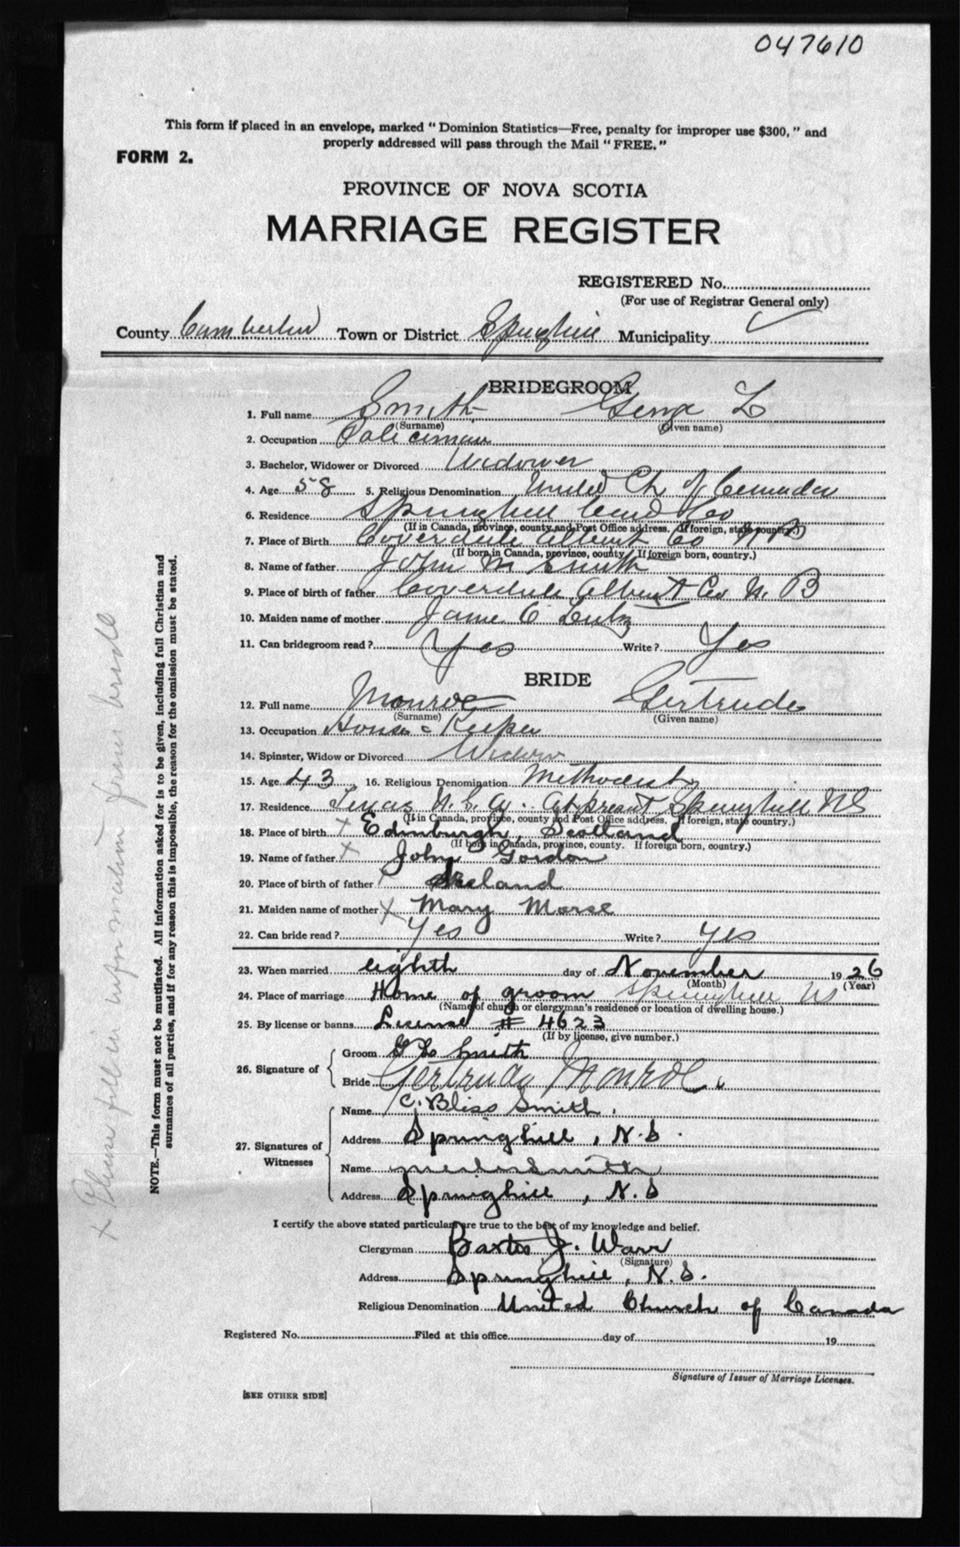 047610
This form if placed in an envelope, marked “Dominion Statistics—Free, penalty for improper use $300,” and
properly addressed will pass through the Mail “FREE.”
FORM 2.
PROVINCE OF NOVA SCOTIA
MARRIAGE REGISTER
REGISTERED No.
(For use of Registrar General only)
County Cumberland Town or District Springhill Municipality
BRIDEGROOM
1. Full name Smith George L
(Surname) (Given name)
2. Occupation Policeman
3. Bachelor, Widower or Divorced Widower
4. Age 58 5. Religious Denomination United Ch of Canada
6. Residence Springhill Cumb Co
(If in Canada, province, county and Post Office address. If foreign, state country.)
7. Place of Birth Coverdale Albert Co N B
(If born in Canada, province, county. If foreign born, country.)
8. Name of father John M Smith
9. Place of birth of father Coverdale Albert Co N. B
10. Maiden name of mother Jane C Lutz
11. Can bridegroom read? Yes Write? Yes
BRIDE
12. Full name Monroe Gertrude
(Surname) (Given name)
13. Occupation House Keeper
14. Spinster, Widow or Divorced Widow
15. Age 43 16. Religious Denomination Methodist
17. Residence Texas U.S.A. At present Springhill NS
(If in Canada, province, county and Post Office address. If foreign, state country.)
18. Place of birth x Edinburgh, Scotland
(If born in Canada, province, county. If foreign born, country.)
19. Name of father x John Gordon
20. Place of birth of father Ireland
21. Maiden name of mother x Mary Morse
22. Can bride read? Yes Write? Yes
23. When married eighth day of November 1926
(Month) (Year)
24. Place of marriage Home of groom Springhill NS
(Name of church or clergyman's residence or location of dwelling house.)
25. By license or banns License # 4623
(If by license, give number.)
26. Signature of { Groom G L Smith
Bride Gertrude Monroe.
27. Signatures of Witnesses { Name C. Bliss Smith.
Address Springhill, N.S.
Name Smith
Address Springhill, N.S
I certify the above stated particulars are true to the best of my knowledge and belief.
Clergyman Baxter J. Warr
(Signature)
Address Springhill, N.S.
Religious Denomination United Church of Canada
Registered No. Filed at this office day of 19
Signature of Issuer of Marriage Licenses.
[SEE OTHER SIDE]
NOTE.—This form must not be mutilated. All information asked for is to be given, including full Christian and
surnames of all parties, and if for any reason this is impossible, the reason for the omission must be stated.
x Please fill in information from bride